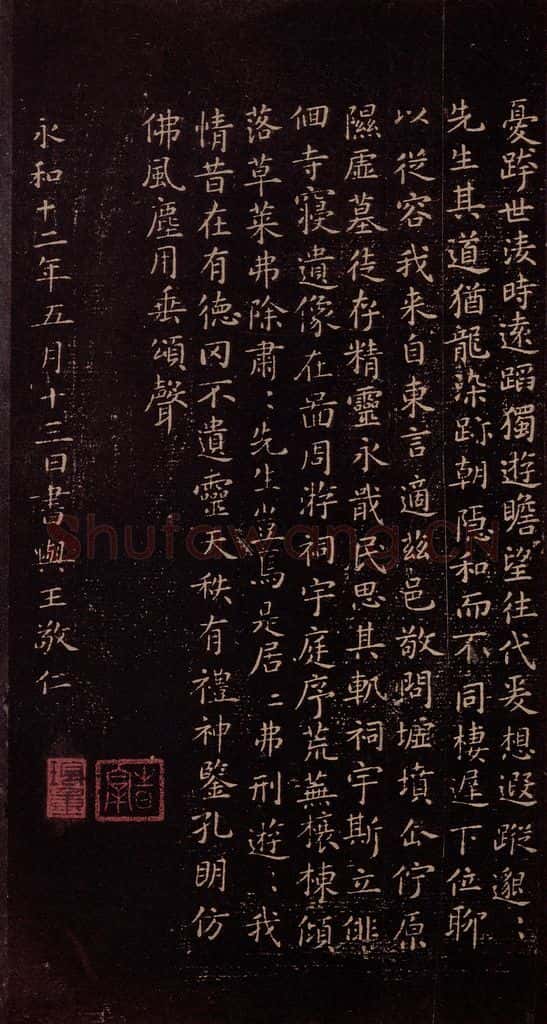 憂跨世淩時遠蹈獨遊瞻望往代爰想遐蹤邈:
先生其道猶龍染跡朝隱和而不同棲遲下位聊
以從容我来自東言適茲邑敬問墟墳企佇原
隰虛墓徒存精靈永戢民思其軌祠宇斯立俳
佪寺寢遺像在啚周游祠宇庭序荒蕪榱棟傾
落草莱弗除肅:先生豈焉是居:弗刑遊:我
情昔在有德罔不遺靈天秩有禮神鑒孔明仿
佛風塵用垂頌聲
永和十二年五月十三日書與王敬仁
Shufawang.CN